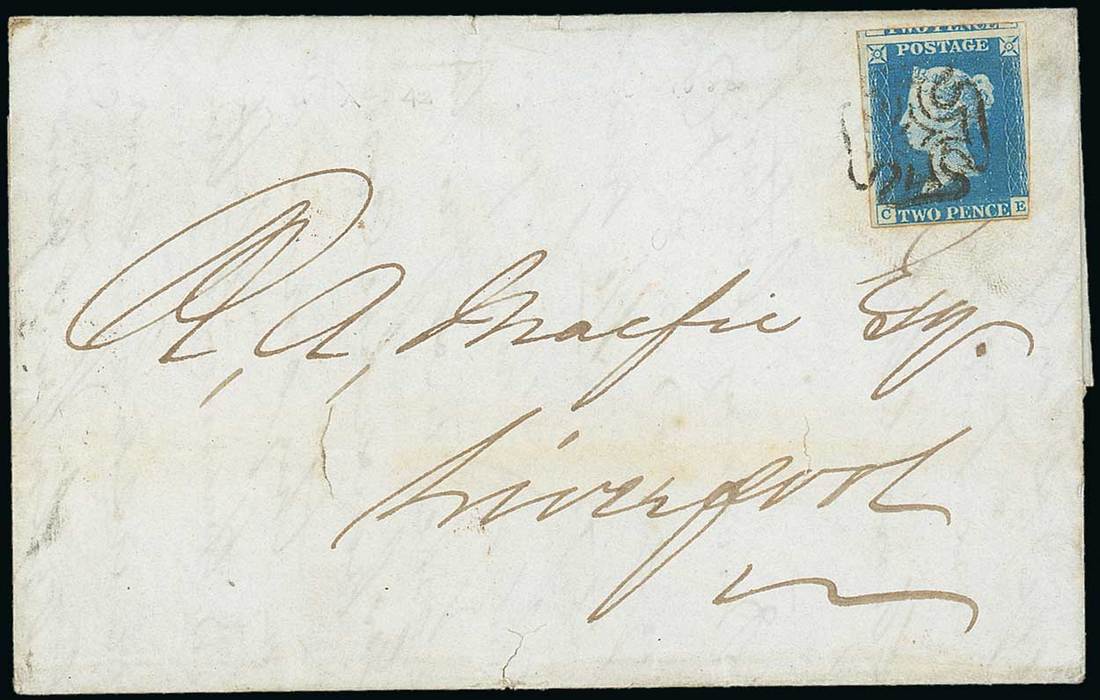 TWO PENCE
POSTAGE
C TWO PENCE E
R, A, Macfie Esq.
Liverpool